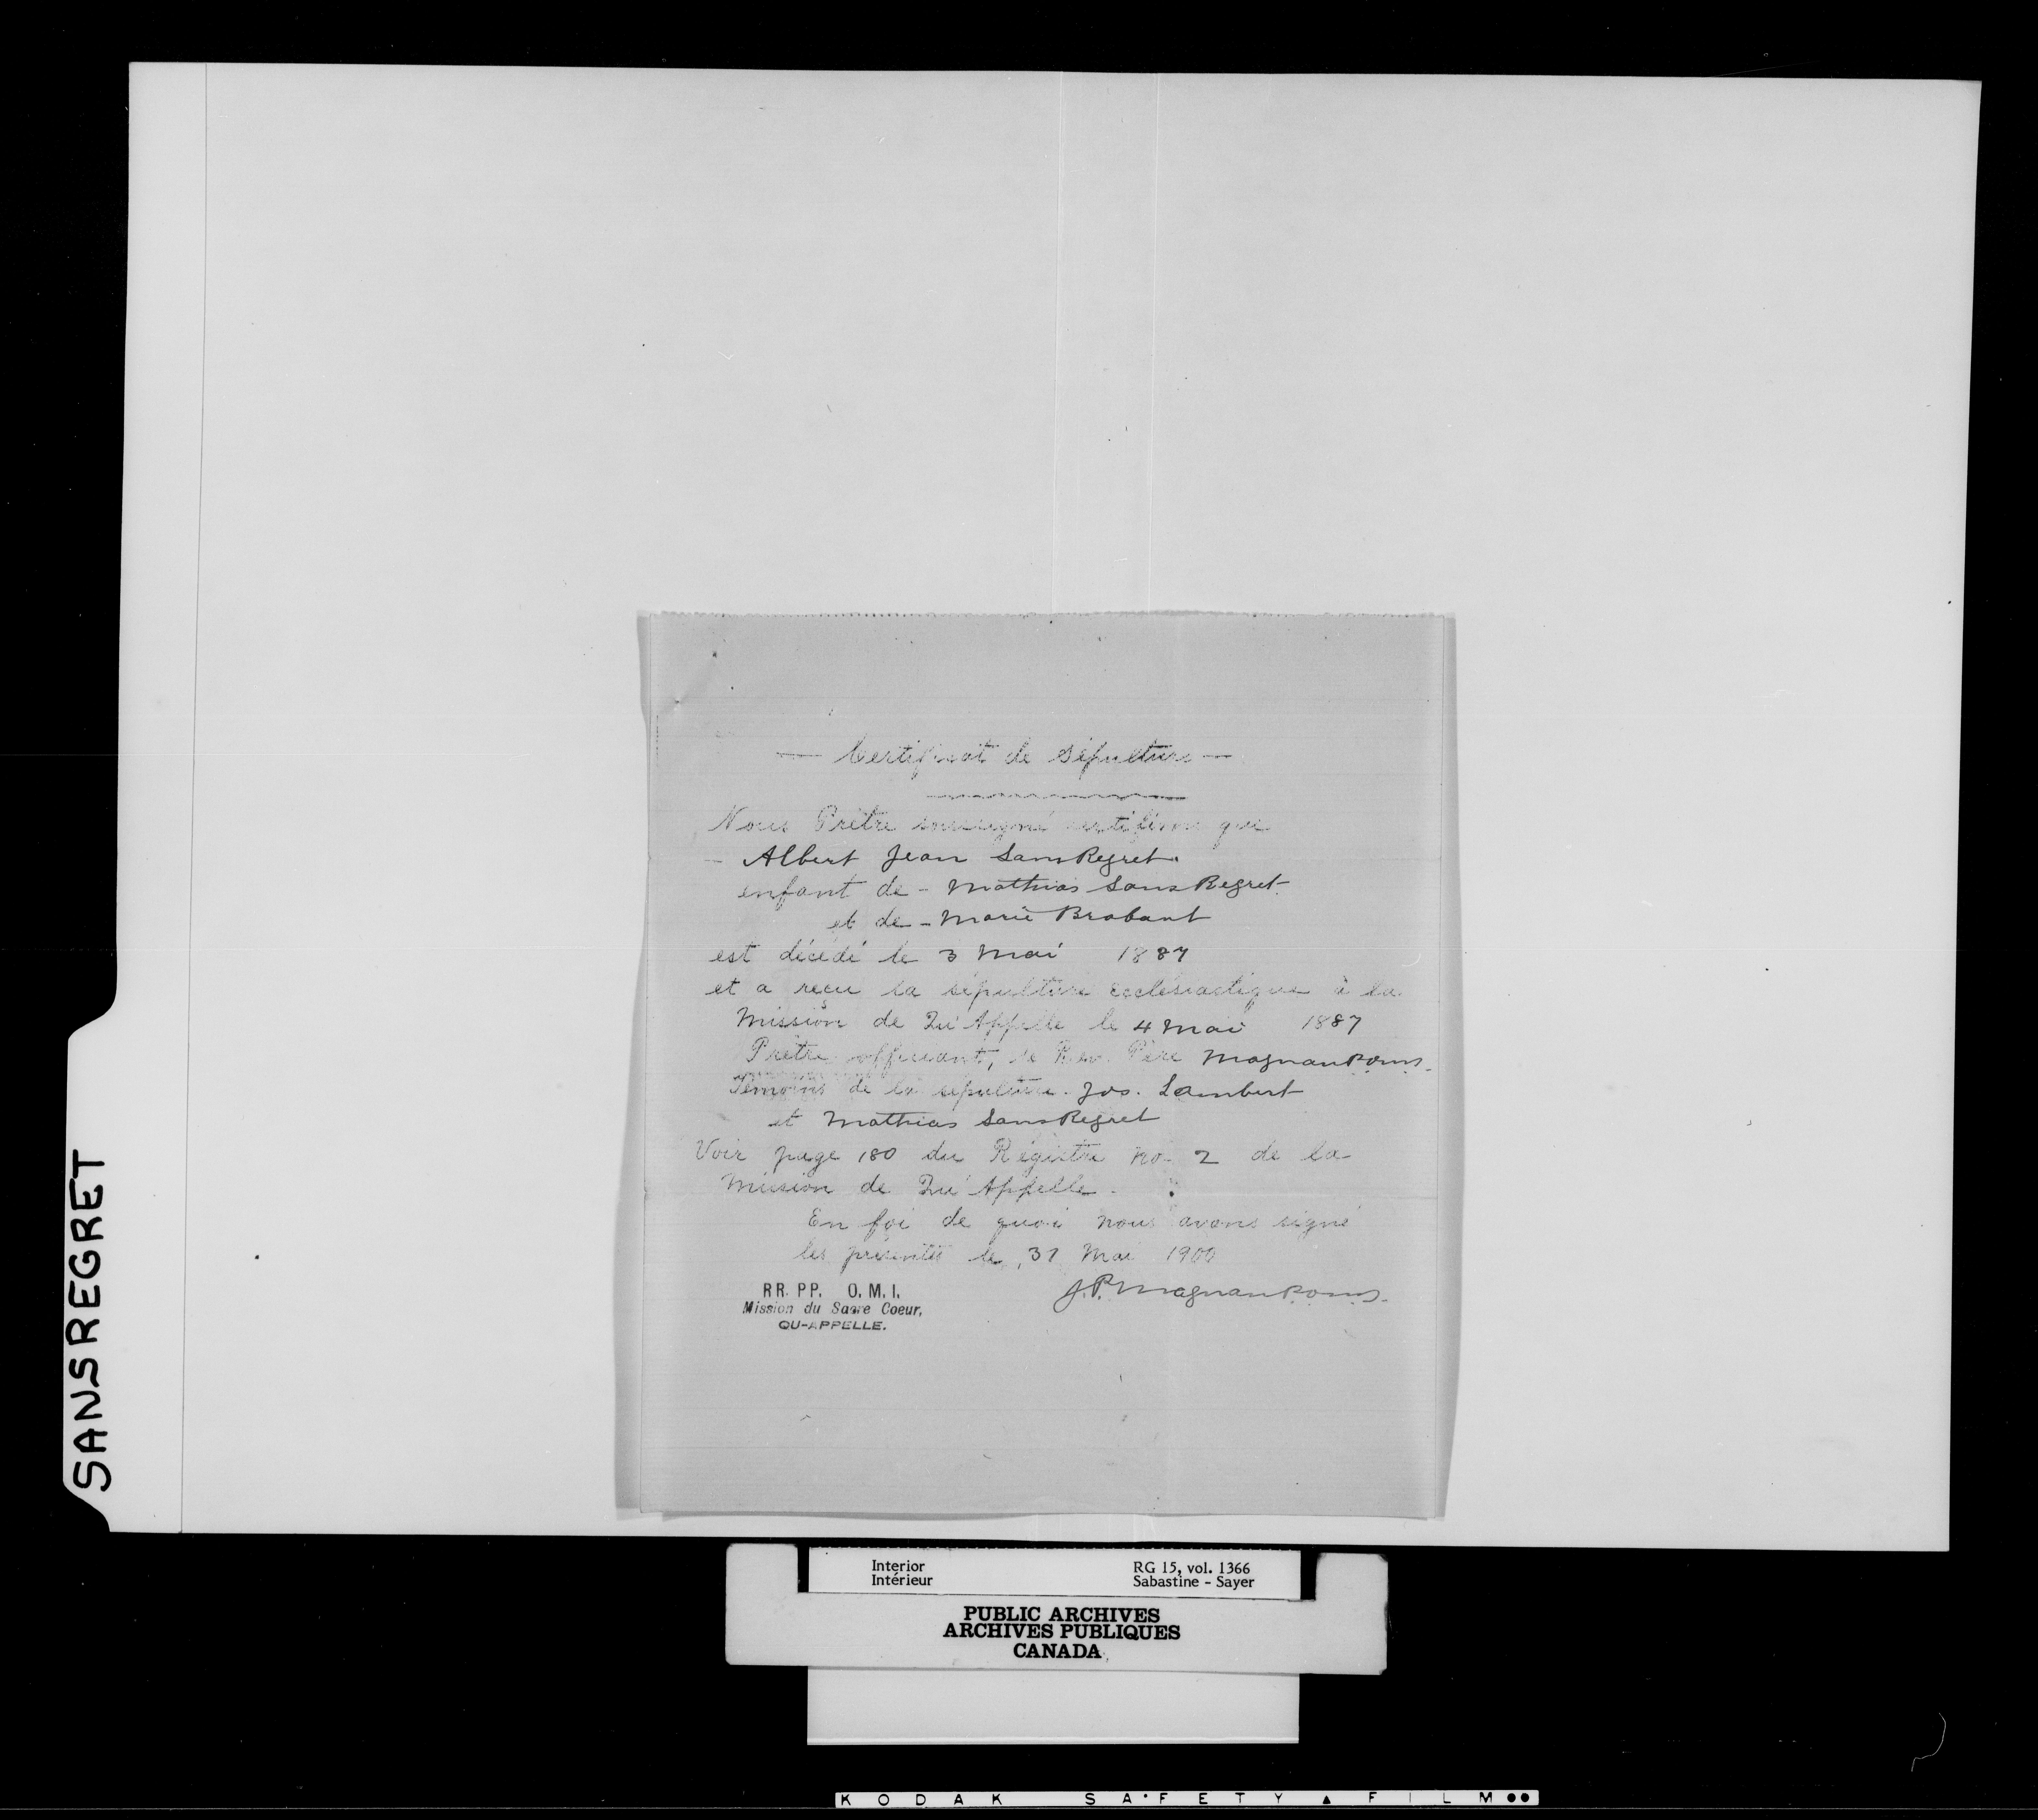 — Certificat de Sépulture —
Nous Prêtre soussigné certifions que
- Albert Jean SansRegret.
enfant de - Mathias SansRegret.
et de - Marie Brabant
est décédé le 3 Mai 1887
et a reçu la sépulture ecclésiastique à la
Mission de Qu'Appelle le 4 Mai 1887
Prêtre officiant, le Rev. Père Magnan P.O.M.I.
Témoins de la sépulture. Jos. Lambert
et Mathias SansRegret
Voir page 180 du Régistre No 2 de la
Mission de Qu'Appelle.
En foi de quoi nous avons signé
les présentes le 31 Mai 1900
J.P. Magnan P.O.M.I.
RR. PP. O. M. I.
Mission du Sacre Coeur,
QU-APPELLE.
SANSREGRET
Interior RG 15, vol. 1366
Intérieur Sabastine - Sayer
PUBLIC ARCHIVES
ARCHIVES PUBLIQUES
CANADA
KODAK SAFETY FILM